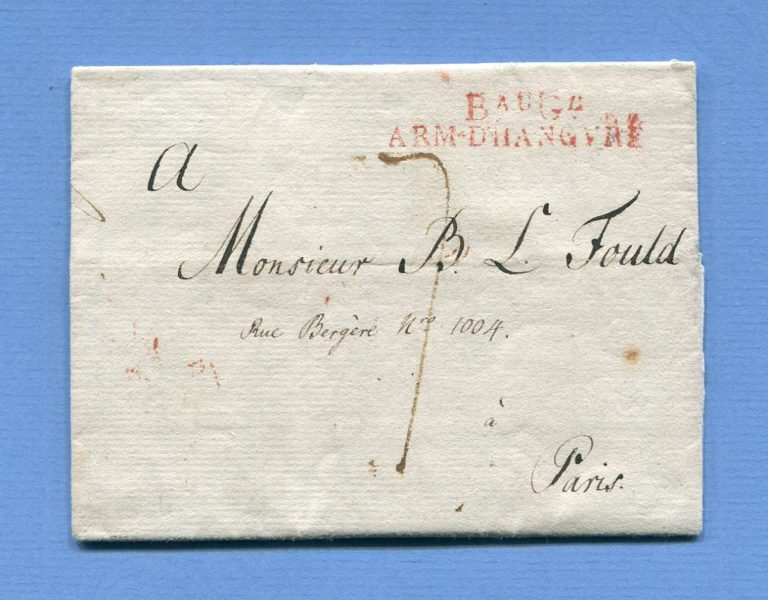 BAU G
ARM-D'HANOVRE
a
7
Monsieur B. L. Fould
Rue Bergère Nro 1004.
à
Paris.